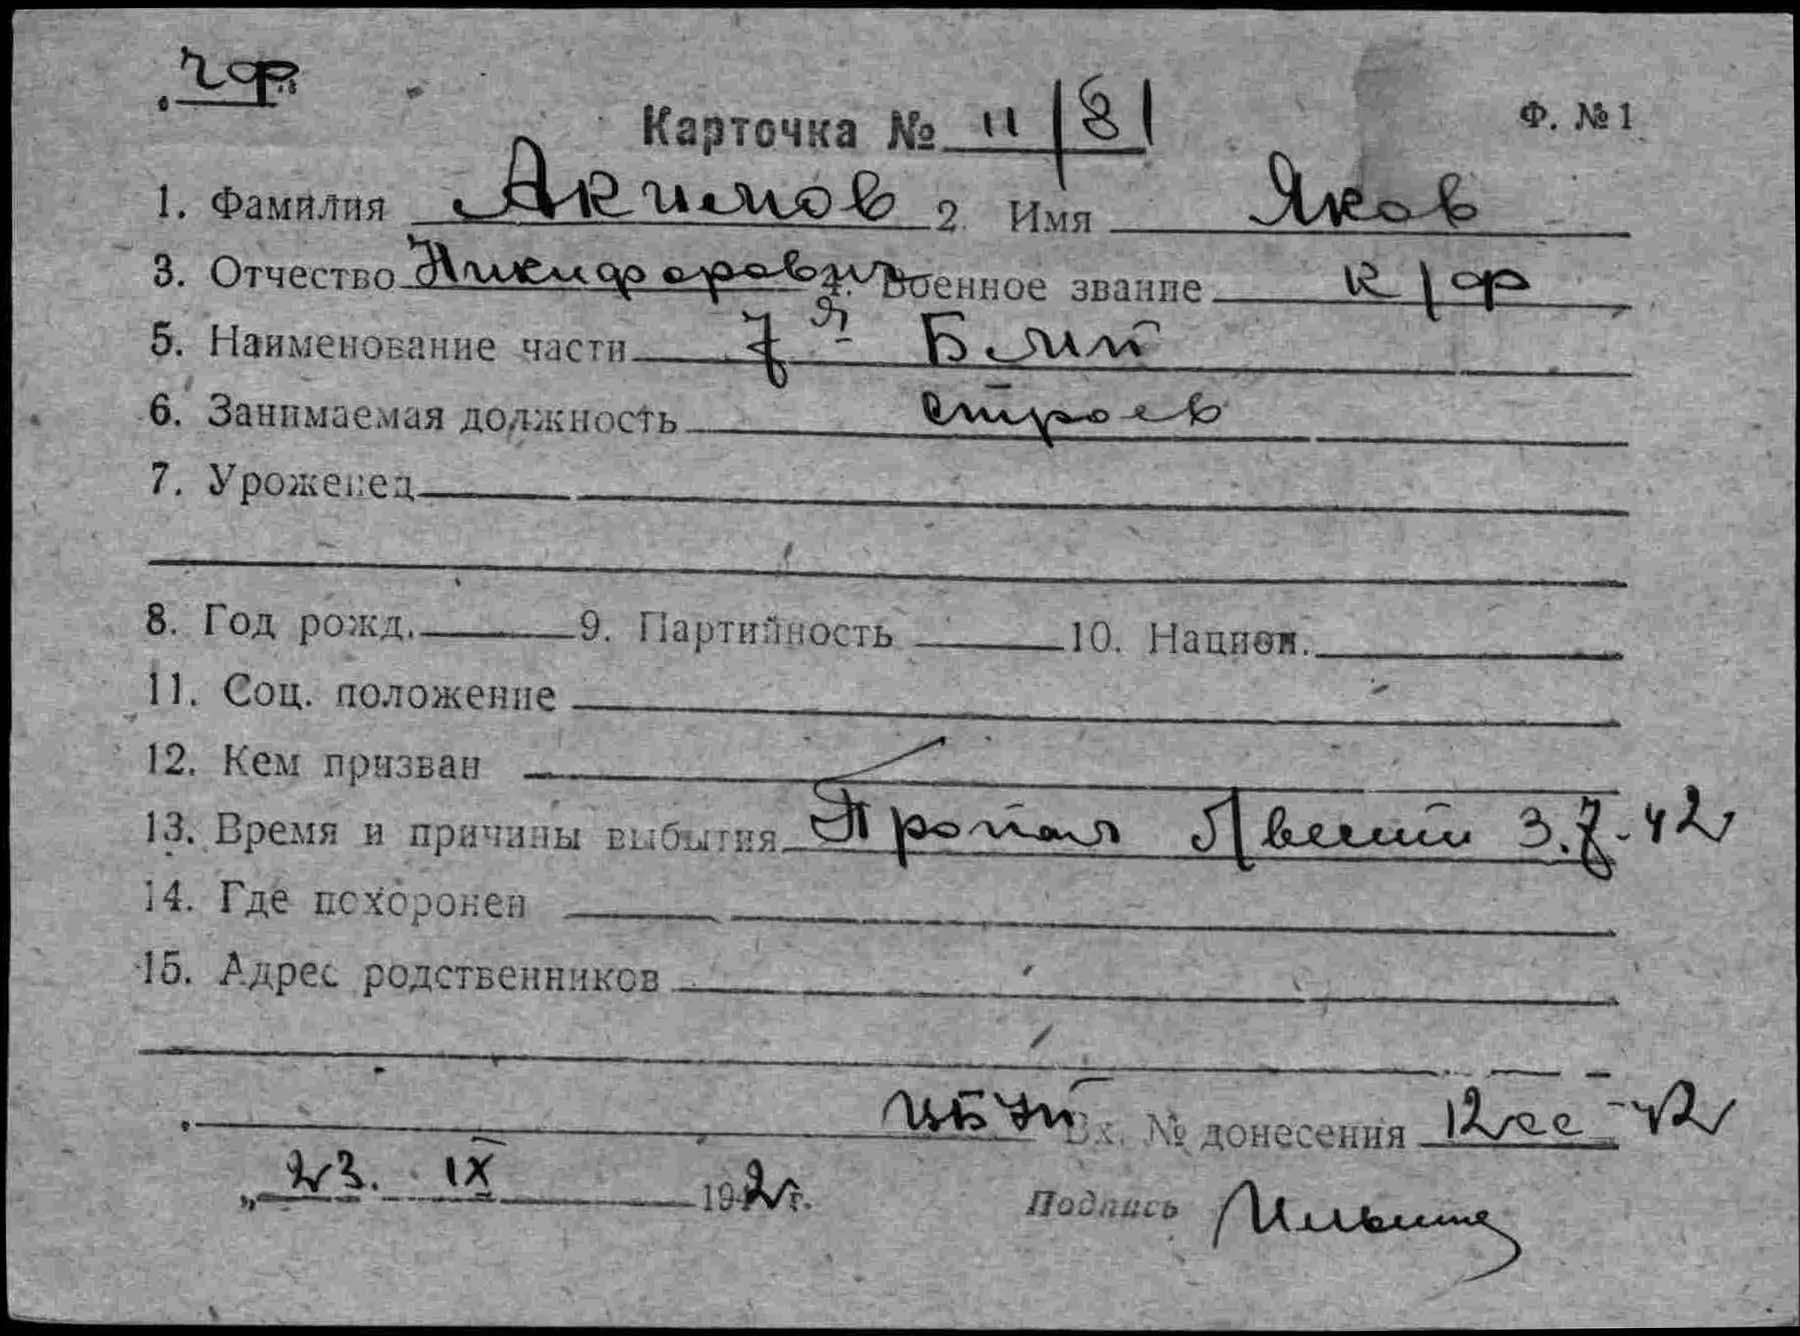 чф.
Карточка № 11/81 Ф. № 1
1. Фамилия Акимов 2. Имя Яков
3. Отчество Никифорович 4. Военное звание к/ф
5. Наименование части 7я Б мп
6. Занимаемая должность строев
7. Уроженец
8. Год рожд. 9. Партийность 10. Национ.
11. Соц. положение
12. Кем призван
13. Время и причины выбытия Пропал 3.7-42
14. Где похоронен
15. Адрес родственников
Вх. № донесения 12сс-42
„23. IX 1942г. Подпись